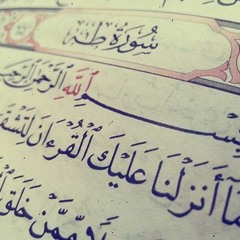 سُورَةُ طه
بِسْمِ اللَّهِ الرَّحْمَنِ الرَّحِيمِ
مَا أَنزَلْنَا عَلَيْكَ الْقُرْءَانَ لِتَشْقَى
مِّمَّنْ خَلَقَ